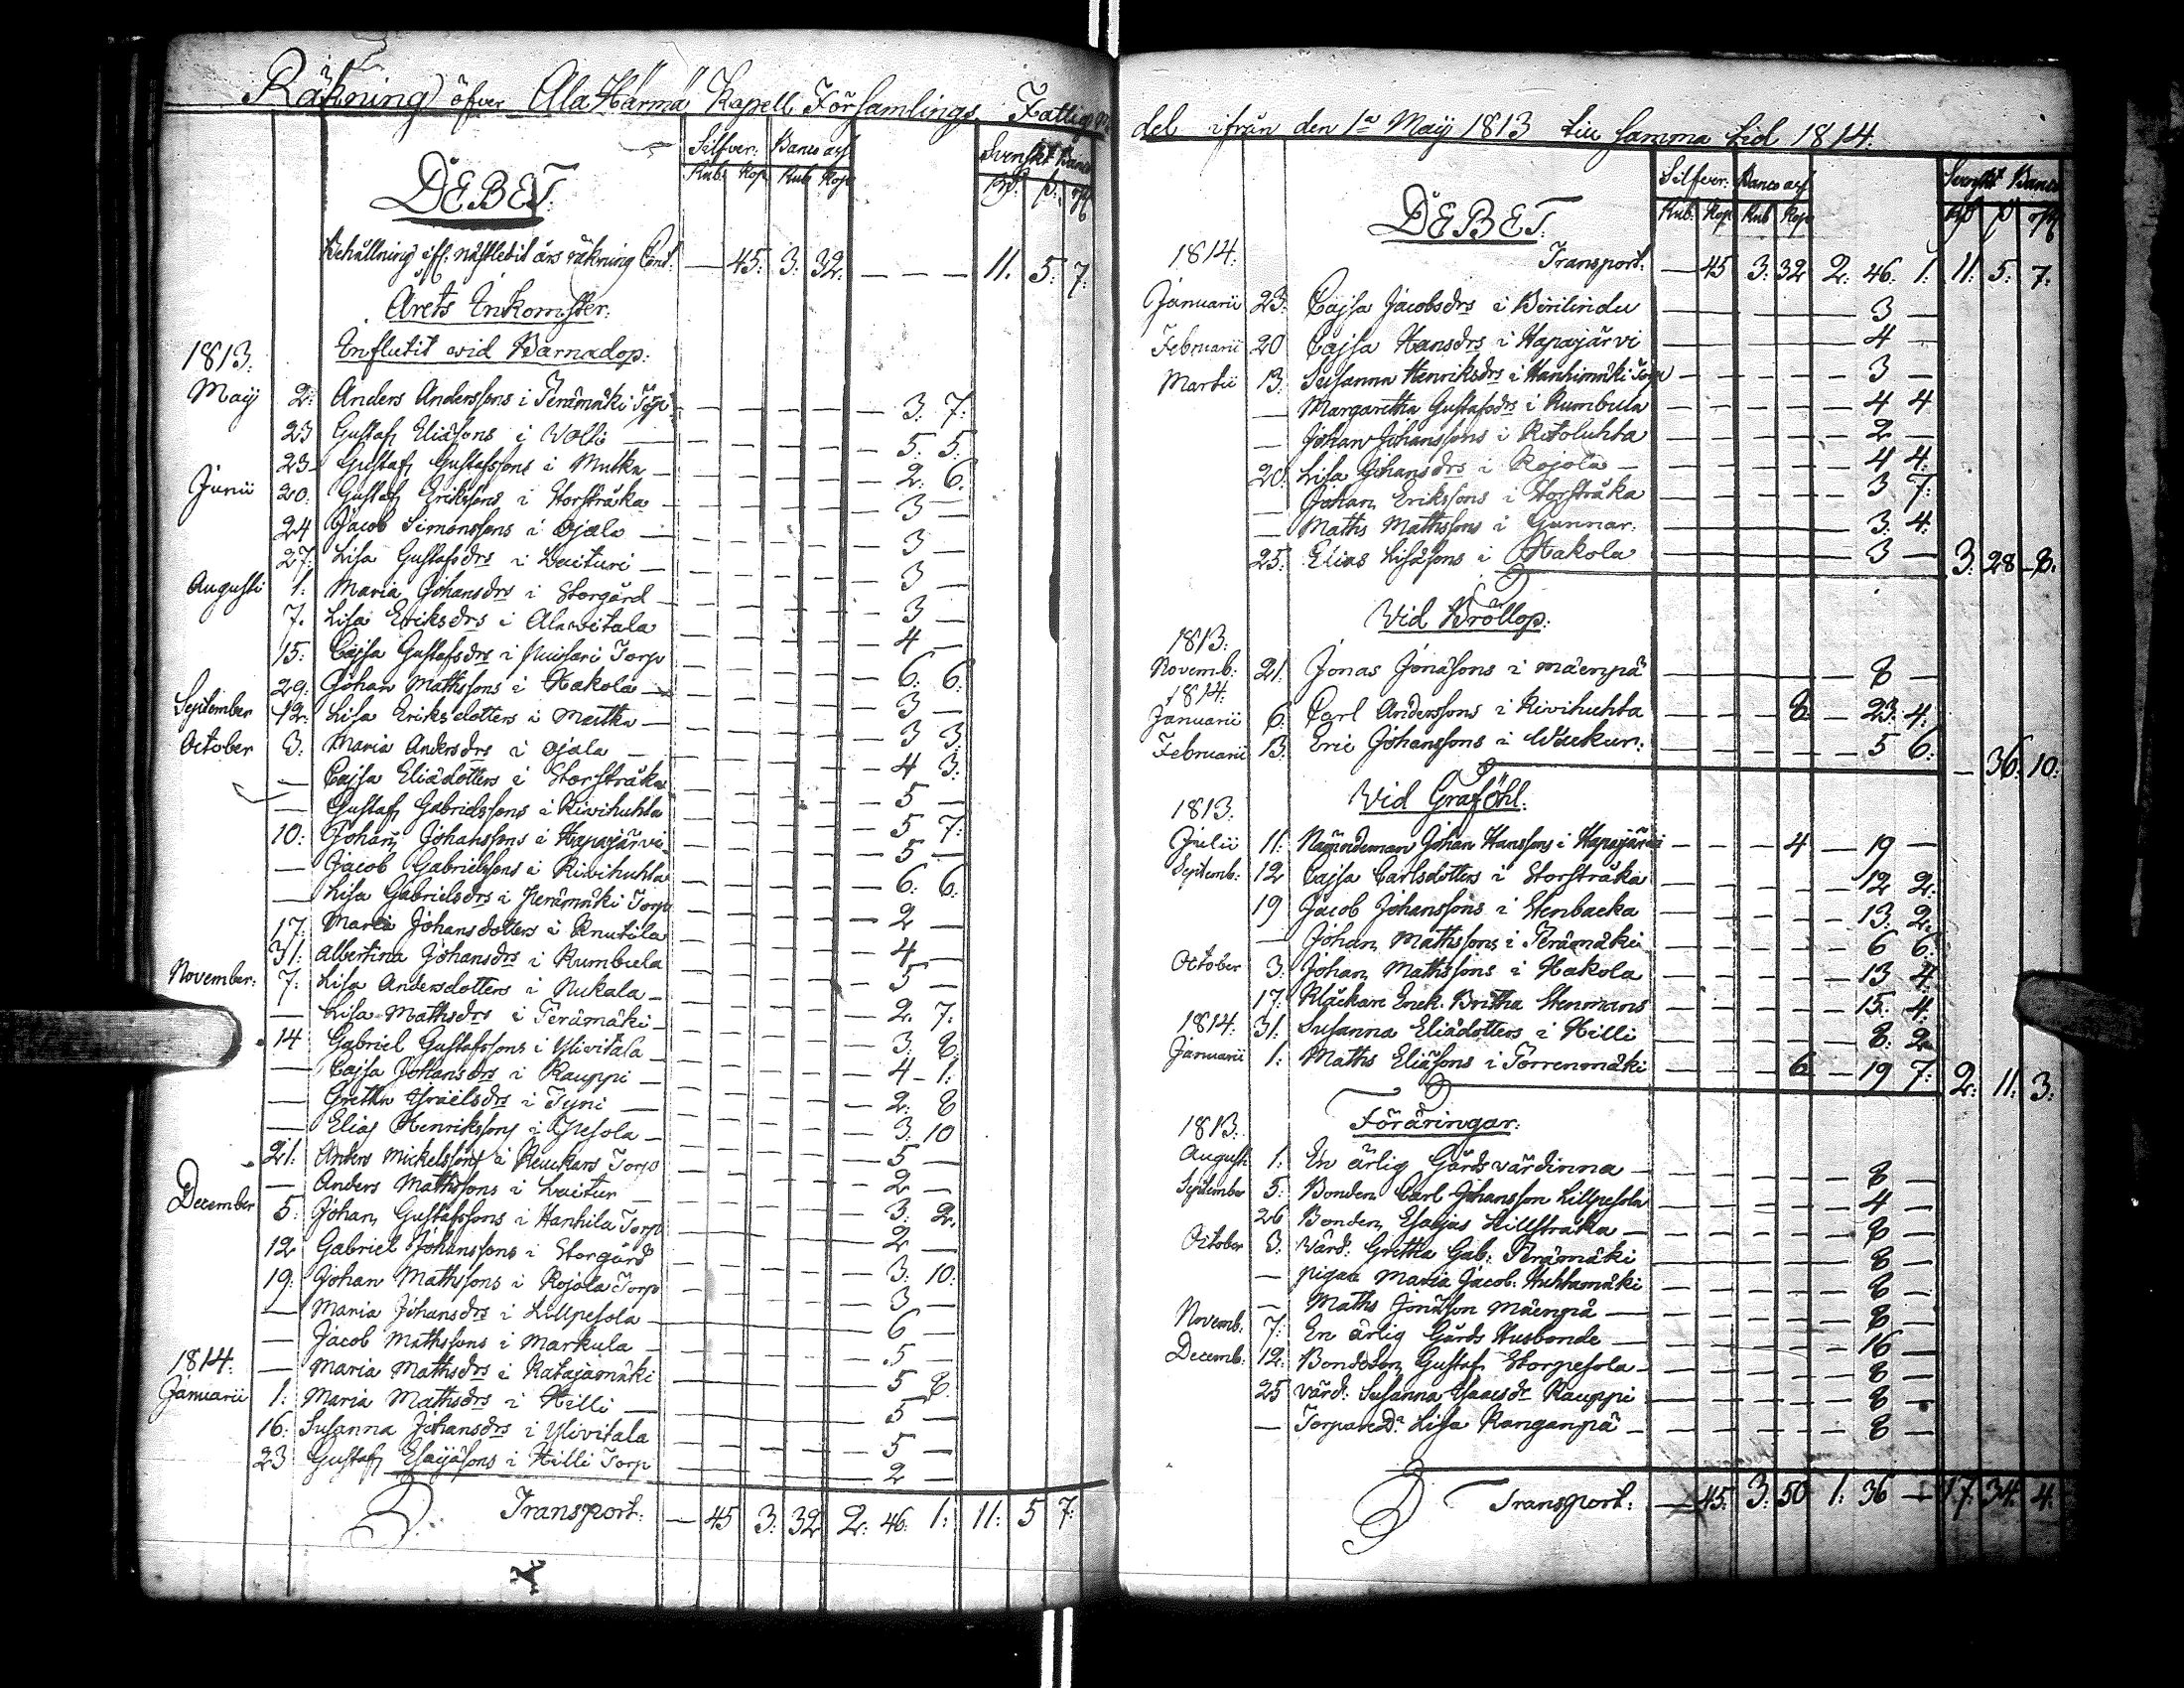 Räkning öfver Ala Härmä Kapell Församlings Fattige
Silfver: Banco ass Svenskt Banco
Rub: Kop Rub Kop
DEBET.
Behållning ifr. nästledit års räkning Cont: — 45: 3: 32. — — — 11. 5: 7:
Årets Inkomster:
1813: Influtit wid Barnadop:
Maij 2: Anders Anderssons i Perämäki Torp — — — — 3: 7:
23 Gustaf Eliäsons i Wolli — — — — 5: 5:
23 Gustaf Gustafssons i Mutka — — — — 2: 6:
Junii 20: Gustaf Erikssons i Storstråka — — — — 3 —
24 Jacob Simonssons i Ojala — — — — 3 —
27: Lisa Gustafsdrs i Laituri — — — — 3 —
Augusti 1: Maria Johansdrs i Storgård — — — — 3 —
7. Lisa Eriksdrs i Alawitala — — — — 4 —
15: Cajsa Gustafsdrs i Torp — — — — 6: 6:
29: Johan Mathssons i Hakola — — — — 3 —
September 12: Lisa Eriksdotters i Mutka — — — — 3 3:
October 3: Maria Andersdrs i Ojala — — — — 4 3:
— Cajsa Eliädotters i Storstråka — — — — 5 —
— Gustaf Gabrielssons i Kivihuhta — — — — 5 7:
10: Johan Johanssons i Hapajärvi — — — — 5 —
— Jacob Gabrielssons i Kivihuhta — — — — 6: 6:
— Lisa Gabrielsdrs i Perämäki Torp — — — — 2 —
17: Maria Johansdotters i Knutila — — — — 4 —
31: Albertina Johansdrs i Kumbula — — — — 5 —
November: 7: Lisa Andersdotters i Nukala — — — — 2: 7:
— Lisa Mathsdrs i Perämäki — — — — 3: 8
14 Gabriel Gustafssons i Ylivitala — — — — 4 1:
— Cajsa Johansdrs i Kauppi — — — — 2: 8
— Gretha Israelsdrs i Tyni — — — — 3: 10
— Elias Henrikssons i Pesola — — — — 5 —
21: Anders Mickelssons i Keuckars Torp — — — — 2 —
— Anders Mathssons i Laitur — — — — 3: 2.
December 5: Johan Gustafssons i Hanhila Torp — — — — 2 —
12 Gabriel Johanssons i Storgård — — — — 3: 10:
19: Johan Mathssons i Kojola Torp — — — — 3 —
— Maria Johansdrs i Lillpesola — — — — 6 —
— Jacob Mathssons i Markula — — — — 5 —
1814: — Maria Mathsdrs i Katajamäki — — — — 5 8
Januarii 1: Maria Mathsdrs i Hilli — — — — 5 —
16: Susanna Johansdrs i Ylivitala — — — — 5 —
23 Gustaf Esaijäsons i Hilli Torp — — — — 2 —
Transport: — 45 3: 32 2: 46: 1: 11: 5 7:
del ifrån den 1a Maij 1813 till samma tid 1814.
Silfver: Banco ass Svenskt Banco
Rub: Kop Rub Kop
DEBET.
1814: Transport: — 45 3: 32 2: 46: 1: 11: 5: 7:
Januarii 23: Cajsa Jacobsdrs i — — — — 3 —
Februarii 20 Cajsa Hansdrs i Hapajärvi — — — — 4 —
Martii 13: Susanna Henriksdrs i Hanhimäki Torp — — — — 3 —
— Margaretha Gustafsdrs i Kumbula — — — — 4 4
— Johan Johanssons i Ritoluhta — — — — 2 —
20: Lisa Johansdrs i Kojola — — — — 4 4:
— Johan Erikssons i Storstråka — — — — 3 7:
— Maths Mathssons i Gunnar: — — — — 3: 4:
25: Elias Elisäsons i Hakola — — — — 3 — 3: 28 8.
Vid Bröllop:
1813:
Novemb: 21: Jonas Jonäsons i Mäenpä — — — — 8 —
1814:
Januarii 6: Carl Anderssons i Kivihuhta — — — 8: — 23: 4:
Februarii 13: Eric Johanssons i Kuckur: — — — — 5 6: — 36: 10:
Vid Graföhl:
1813:
Julii 11: Nämndeman Johan Hanssons i Hapajärvi — — — 4 — 19 —
Septemb: 12 Cajsa Carlsdotters i Storstråka — — — — 12 2:
19 Jacob Johanssons i Stenbacka — — — — 13: 2.
— Johan Mathssons i Perämäki — — — — 6 6:
October 3: Johan Mathssons i Hakola — — — — 13 4:
17: Klåckare Enck. Britha Stenmans — — — — 15: 4:
1814: 31: Susanna Eliädotters i Hilli — — — — 8: 2.
Januarii 1: Maths Eliäsons i Torrenmäki — — — 6 — 19 7: 2: 11: 3:
Föräringar:
1813:
Augusti 1: En ärlig Gårdsvärdinna — — — — 8 —
September 5: Bonden Carl Johansson Lillpesola — — — — 4 —
26 Bonden Esaijas Lillstråka — — — — 8 —
October 3: Värd: Gretha Gab: Perämäki — — — — 8 —
— Pigan Maria Jacob: Huhtamäki — — — — 8 —
— Maths Jonäson Mäenpä — — — — 8 —
Novemb: 7: En ärlig Gårds Husbonde — — — — 16 —
Decemb: 12: Bondeson Gustaf Storpesola — — — — 8 —
25 Värd: Susanna Isaacsdr Kauppi — — — — 8 —
— Torpare Dr Lisa Kanganpä — — — — 8 —
Transport: — 45: 3: 50 1: 36 — 17: 34: 4: